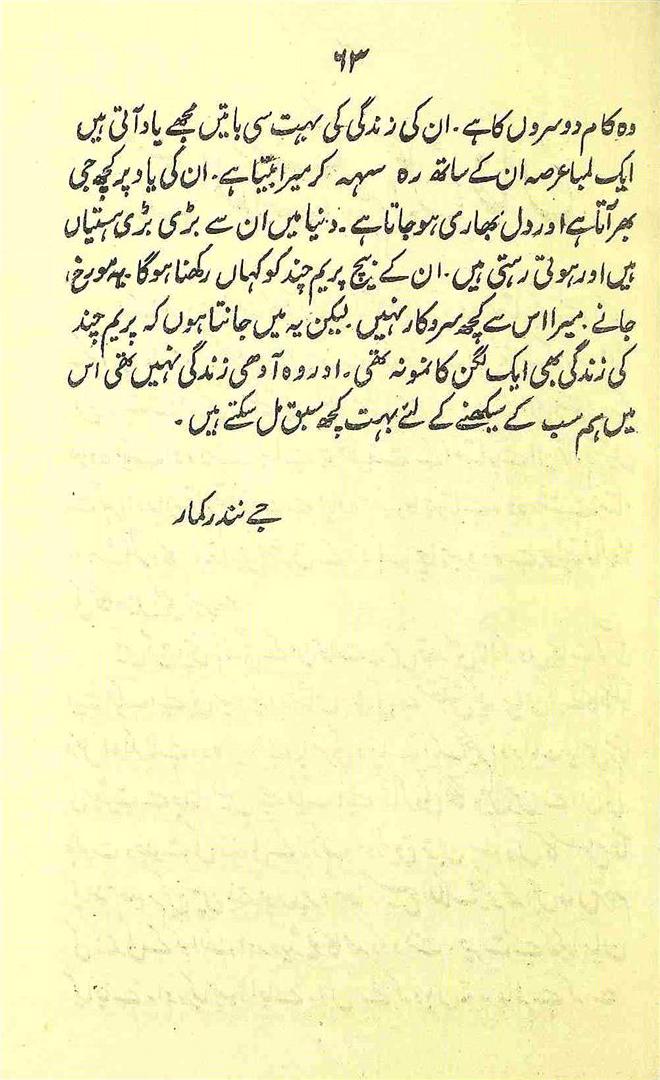 ۶۳
وہ کام دوسروں کا ہے۔ ان کی زندگی کی بہت سی باتیں مجھے یاد آتی ہیں
ایک لمبا عرصہ ان کے ساتھ رہ سہہ کر میرا بیتا ہے۔ ان کی یاد پر کچھ جی
بھر آتا ہے اور دل بھاری ہو جاتا ہے۔ دنیا میں ان سے بڑی بڑی ہستیاں
ہیں اور ہوتی رہتی ہیں۔ ان کے بیچ پریم چند کو کہاں رکھنا ہوگا۔ یہ مورخ،
جانے۔ میرا اس سے کچھ سروکار نہیں۔ لیکن یہ میں جانتا ہوں کہ پریم چند
کی زندگی بھی ایک لگن کا نمونہ تھی۔ اور وہ آدھی زندگی نہیں تھی اس
میں ہم سب کے سیکھنے کے لئے بہت کچھ سبق مل سکتے ہیں۔
جے نندر کمار